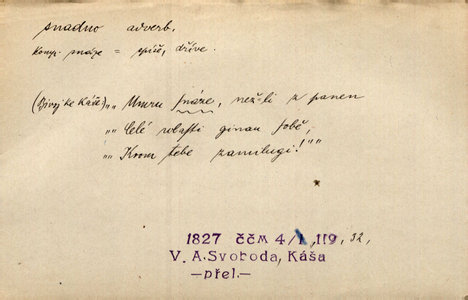 snadno adverb.
Komp. snáze = spíše, dříve.
(Divoj ke Káše) „„Umru snáze, než-li z panen
„„Celé wlasti ginau sobě,
„„Krom tebe zamilugi!""
1827 ČČM 4/1, 119, 32,
V. A. Svoboda, Káša
—přel.—